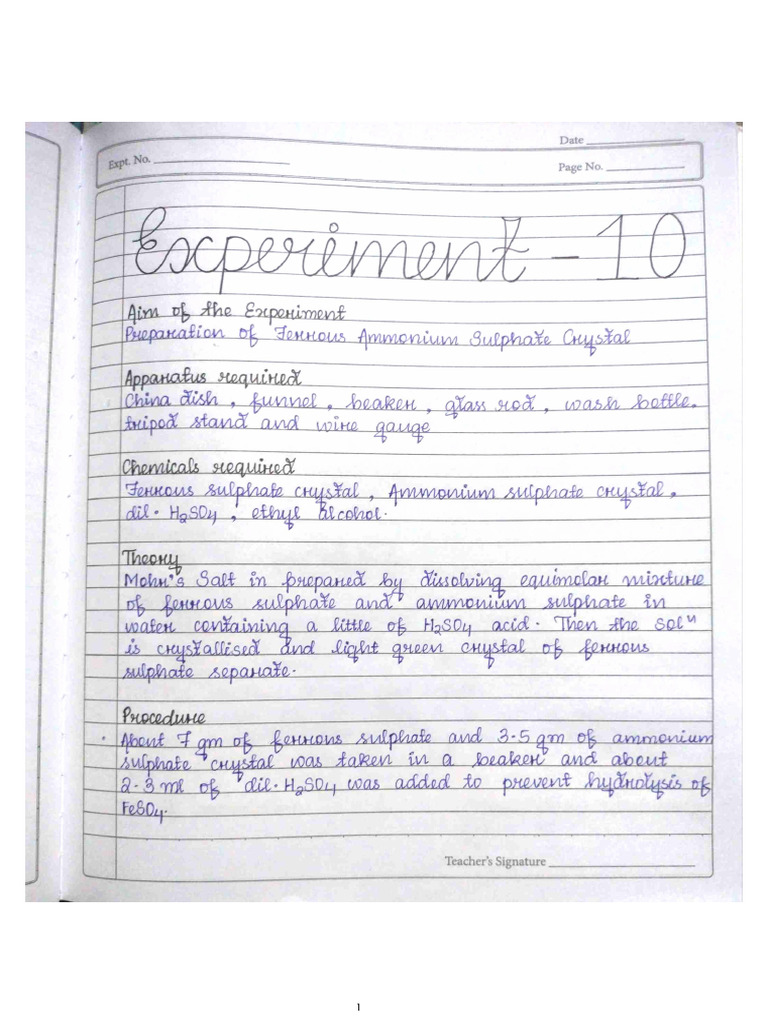 Date
Expt. No.
Page No.
Experiment - 10
Aim of the Experiment
Preparation of Ferrous Ammonium Sulphate Crystal
Apparatus required
China dish, funnel, beaker, glass rod, wash bottle.
tripod stand and wire gauge
Chemicals required
Ferrous sulphate crystal, Ammonium sulphate crystal,
dil. H₂SO₄, ethyl alcohol.
Theory
Mohr's Salt in prepared by dissolving equimolar mixture
of ferrous sulphate and ammonium sulphate in
water containing a little of H₂SO₄ acid. Then the solⁿ
is crystallised and light green crystal of ferrous
sulphate separate.
Procedure
• About 7 gm of ferrous sulphate and 3.5 gm of ammonium
sulphate crystal was taken in a beaker and about
2-3 ml of dil. H₂SO₄ was added to prevent hydrolysis of
FeSO₄.
Teacher's Signature
1